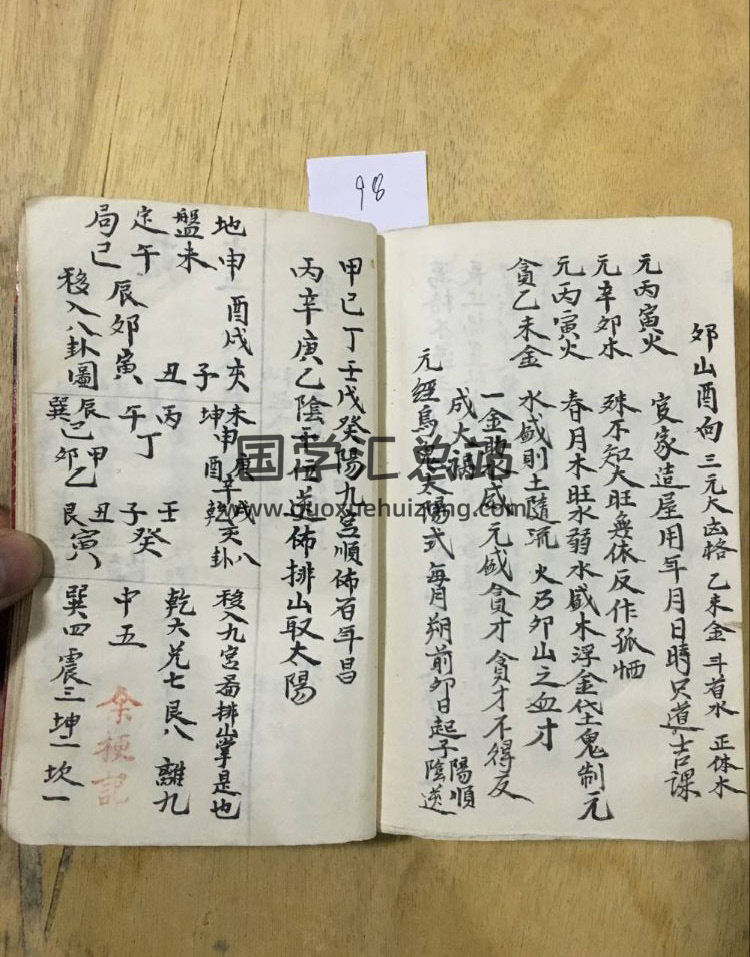 98
卯山酉向 三元大凶格 乙未金 斗首水 正体木
官家造屋用年月日時只道吉課
元丙寅火 殊不知大旺無依反作孤恓
元辛卯水 春月木旺水弱水盛木浮金伐土鬼制元
元丙寅火 水盛則土隨流 火乃卯山之血才
貪乙未金 一金敢
元盛貪才 貪才不得反
成大禍
元經烏兔太陽式 每月朔前卯日起子陽順
陰逆
甲己丁壬戊癸陽九宮順佈百年昌
丙辛庚乙陰干位逆佈排山取太陽
地盤定局
申未午巳
酉戌亥
辰卯寅
子丑
移入八卦圖
未坤申
庚酉辛
戌乾亥
八卦
丙午丁
壬子癸
辰巽巳
甲卯乙
丑艮寅
移入九宮圖排山掌是也
乾六兌七艮八離九
中五
巽四震三坤一坎一
余梗記
国学汇总站
www.guoxuehuizong.com